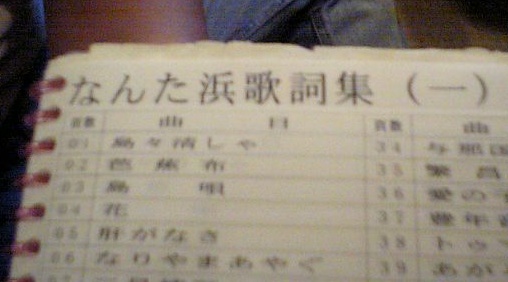 なんた浜歌詞集（一）
頁数 曲 目 頁数 曲
01 島々清しゃ 34 与那国
02 芭蕉布 35 繁昌
03 島唄 36 愛の
04 花 37 豊年
05 肝がなさ 38 トゥ
06 なりやまあやぐ 39 あが
07